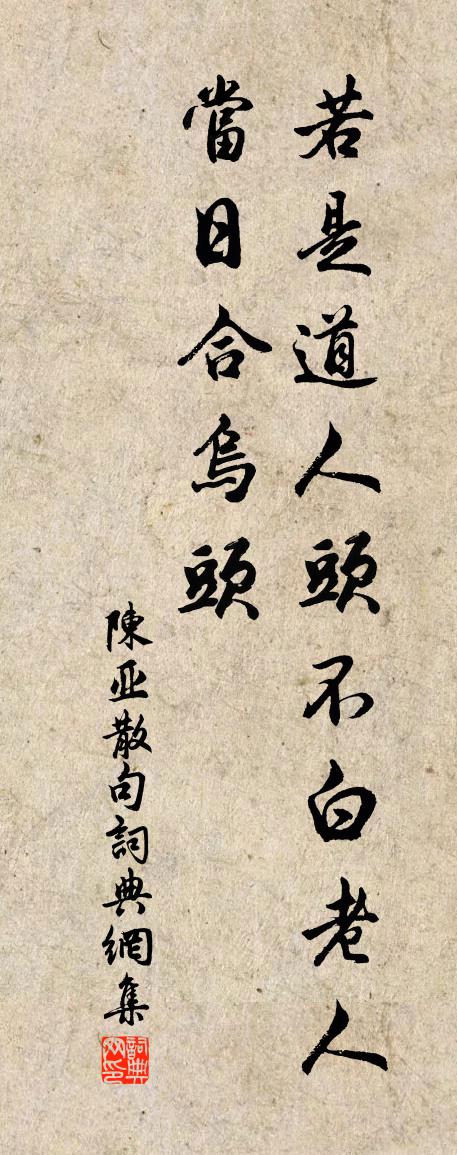 若是道人頭不白老人
當日合烏頭
陳亚散句詞典網集
詞典网印